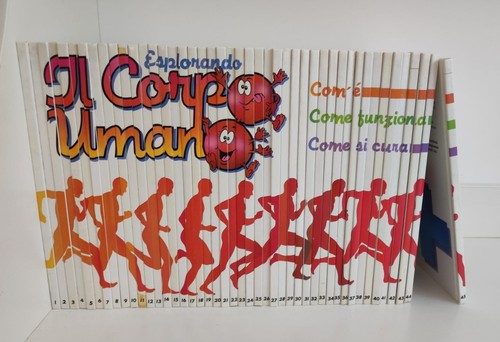 Esplorando
Il Corpo
Umano
Com'è
Come funziona
Come si cura
1 2 3 4 5 6 7 8 9 10 11 12 13 14 15 16 17 18 19 20 21 22 23 24 25 26 27 28 29 30 31 32 33 34 35 36 37 38 39 40 41 42 43 44 45